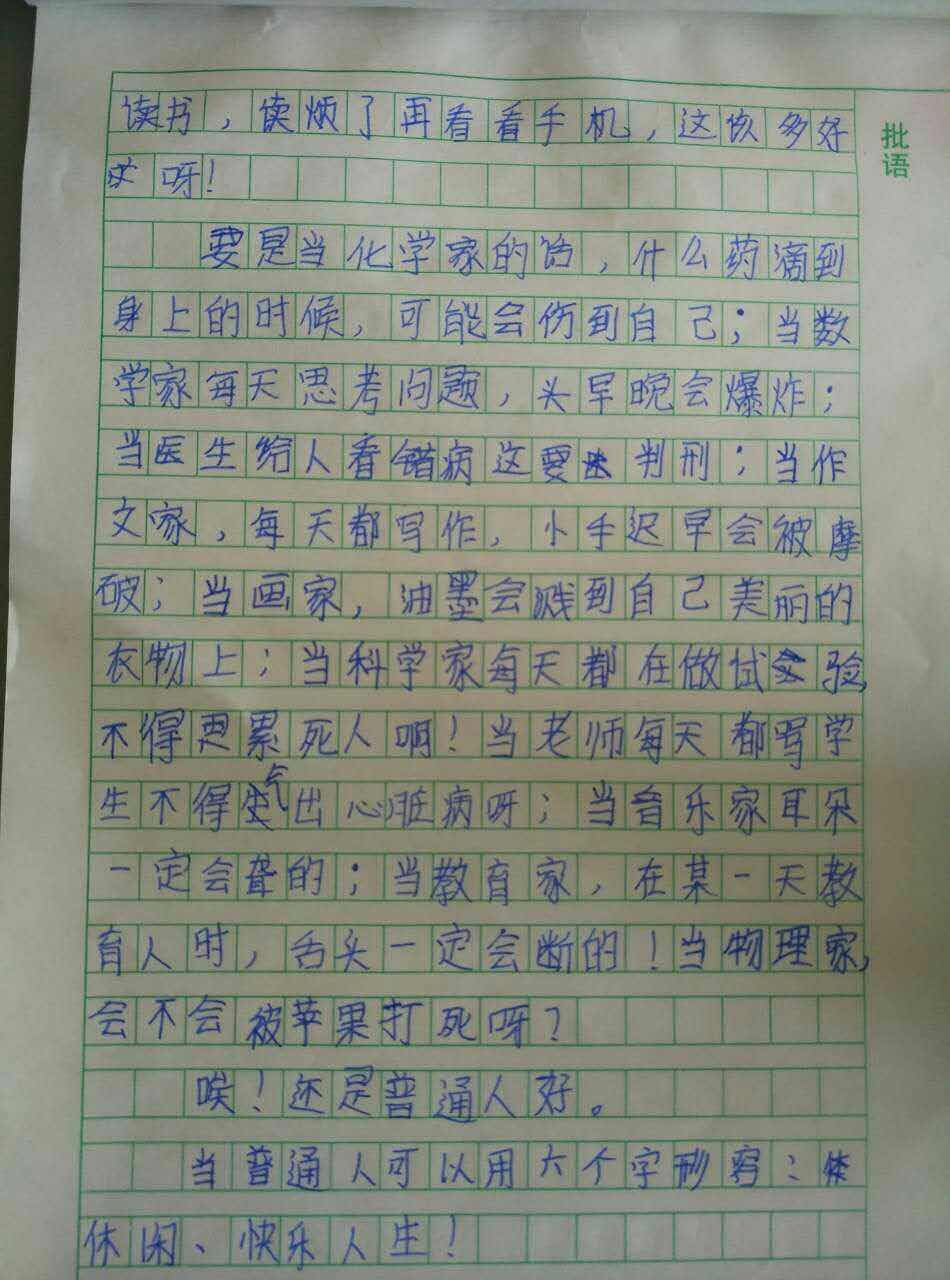 读书，读烦了再看看手机，这该多好
呀！
批语
要是当化学家的话，什么药滴到
身上的时候，可能会伤到自己；当数
学家每天思考问题，头早晚会爆炸；
当医生给人看错病这要判刑；当作
文家，每天都写作，小手迟早会被摩
破；当画家，油墨会溅到自己美丽的
衣物上；当科学家每天都在做试验，
不得更累死人啊！当老师每天都骂学
生不得气出心脏病呀；当音乐家耳朵
一定会聋的；当教育家，在某一天教
育人时，舌头一定会断的！当物理家，
会不会被苹果打死呀？
唉！还是普通人好。
当普通人可以用六个字形容：
休闲、快乐人生！